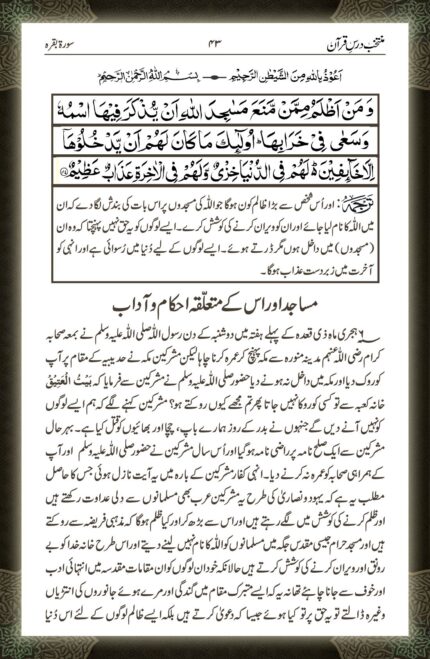 منتخب درسِ قرآن ۴۳ سورۃ بقرہ
اَعُوْذُ بِاللّٰہِ مِنَ الشَّیْطٰنِ الرَّجِیْمِ ۔ بِسْمِ اللّٰہِ الرَّحْمٰنِ الرَّحِیْمِ
وَمَنْ اَظْلَمُ مِمَّنْ مَّنَعَ مَسٰجِدَ اللّٰہِ اَنْ یُّذْكَرَ فِیْهَا اسْمُهٗ
وَسَعٰی فِیْ خَرَابِهَا ؕ اُولٰٓئِكَ مَا كَانَ لَهُمْ اَنْ یَّدْخُلُوْهَاۤ
اِلَّا خَآئِفِیْنَ ؕ۬ لَهُمْ فِی الدُّنْیَا خِزْیٌ وَّلَهُمْ فِی الْاٰخِرَۃِ عَذَابٌ عَظِیْمٌ
ترجمہ : اور اُس شخص سے بڑا ظالم کون ہوگا جو اللہ کی مسجدوں پر اس بات کی بندش لگا دے کہ ان
میں اللہ کا نام لیا جائے اور ان کو ویران کرنے کی کوشش کرے۔ ایسے لوگوں کو یہ حق نہیں پہنچتا کہ وہ ان
(مسجدوں) میں داخل ہوں مگر ڈرتے ہوئے۔ ایسے لوگوں کے لیے دُنیا میں رُسوائی ہے اور انہی کو
آخرت میں زبردست عذاب ہوگا۔
مساجد اور اس کے متعلّقہ احکام و آداب
۶ ہجری ماہ ذی قعدہ کے پہلے ہفتہ میں دوشنبہ کے دن رسول اللہ صلی اللہ علیہ وسلم نے بمعہ صحابہ
کرام رضی اللہ عنہم مدینہ منورہ سے مکہ پہنچ کر عمرہ کرنا چاہا لیکن مشرکین مکہ نے حدیبیہ کے مقام پر آپ
کو روک دیا اور مکہ میں داخل نہ ہونے دیا حضور صلی اللہ علیہ وسلم نے مشرکین سے فرمایا کہ بَیْتُ الْعَتِیْق
خانہ کعبہ سے تو کسی کو روکا نہیں جاتا پھر تم مجھے کیوں روکتے ہو؟ مشرکین کہنے لگے کہ ہم ایسے لوگوں
کو نہیں آنے دیں گے جنہوں نے بدر کے روز ہمارے باپ، چچا اور بھائیوں کو قتل کیا ہے۔ بہر حال
مشرکین سے ایک صلح نامہ پر راضی نامہ ہوگیا اور اُس سال مشرکین نے حضور صلی اللہ علیہ وسلم اور آپ
کے ہمراہی صحابہ کو عمرہ نہ کرنے دیا۔ انہی کفار مشرکین کے بارہ میں یہ آیت نازل ہوئی جس کا حاصل
مطلب یہ ہے کہ یہود و نصاریٰ کی طرح یہ مشرکین عرب بھی مسلمانوں سے دلی عداوت رکھتے ہیں
اور ظلم کرنے کی کوشش میں لگے رہتے ہیں اور اس سے بڑھ کر اور کیا ظلم ہوگا کہ مذہبی فریضہ سے روکتے
ہیں اور مسجد حرام جیسی مقدس جگہ میں مسلمانوں کو اللہ کا نام نہیں لینے دیتے اور اس طرح خانہ خدا کو بے
رونق اور ویران کرنے کی کوشش کرتے ہیں حالانکہ خود ان لوگوں کو ان مقامات مقدسہ میں انتہائی ادب
اور خوف سے جانا چاہئے تھا نہ کہ ایسے متبرک مقام میں گندگی اور مرے ہوئے جانوروں کی انتڑیاں
وغیرہ ڈالتے تو یہ حق پر تو کیا ہوئے جیسا کہ دعویٰ کرتے ہیں بلکہ ایسے ظالم لوگوں کے لئے اس دُنیا